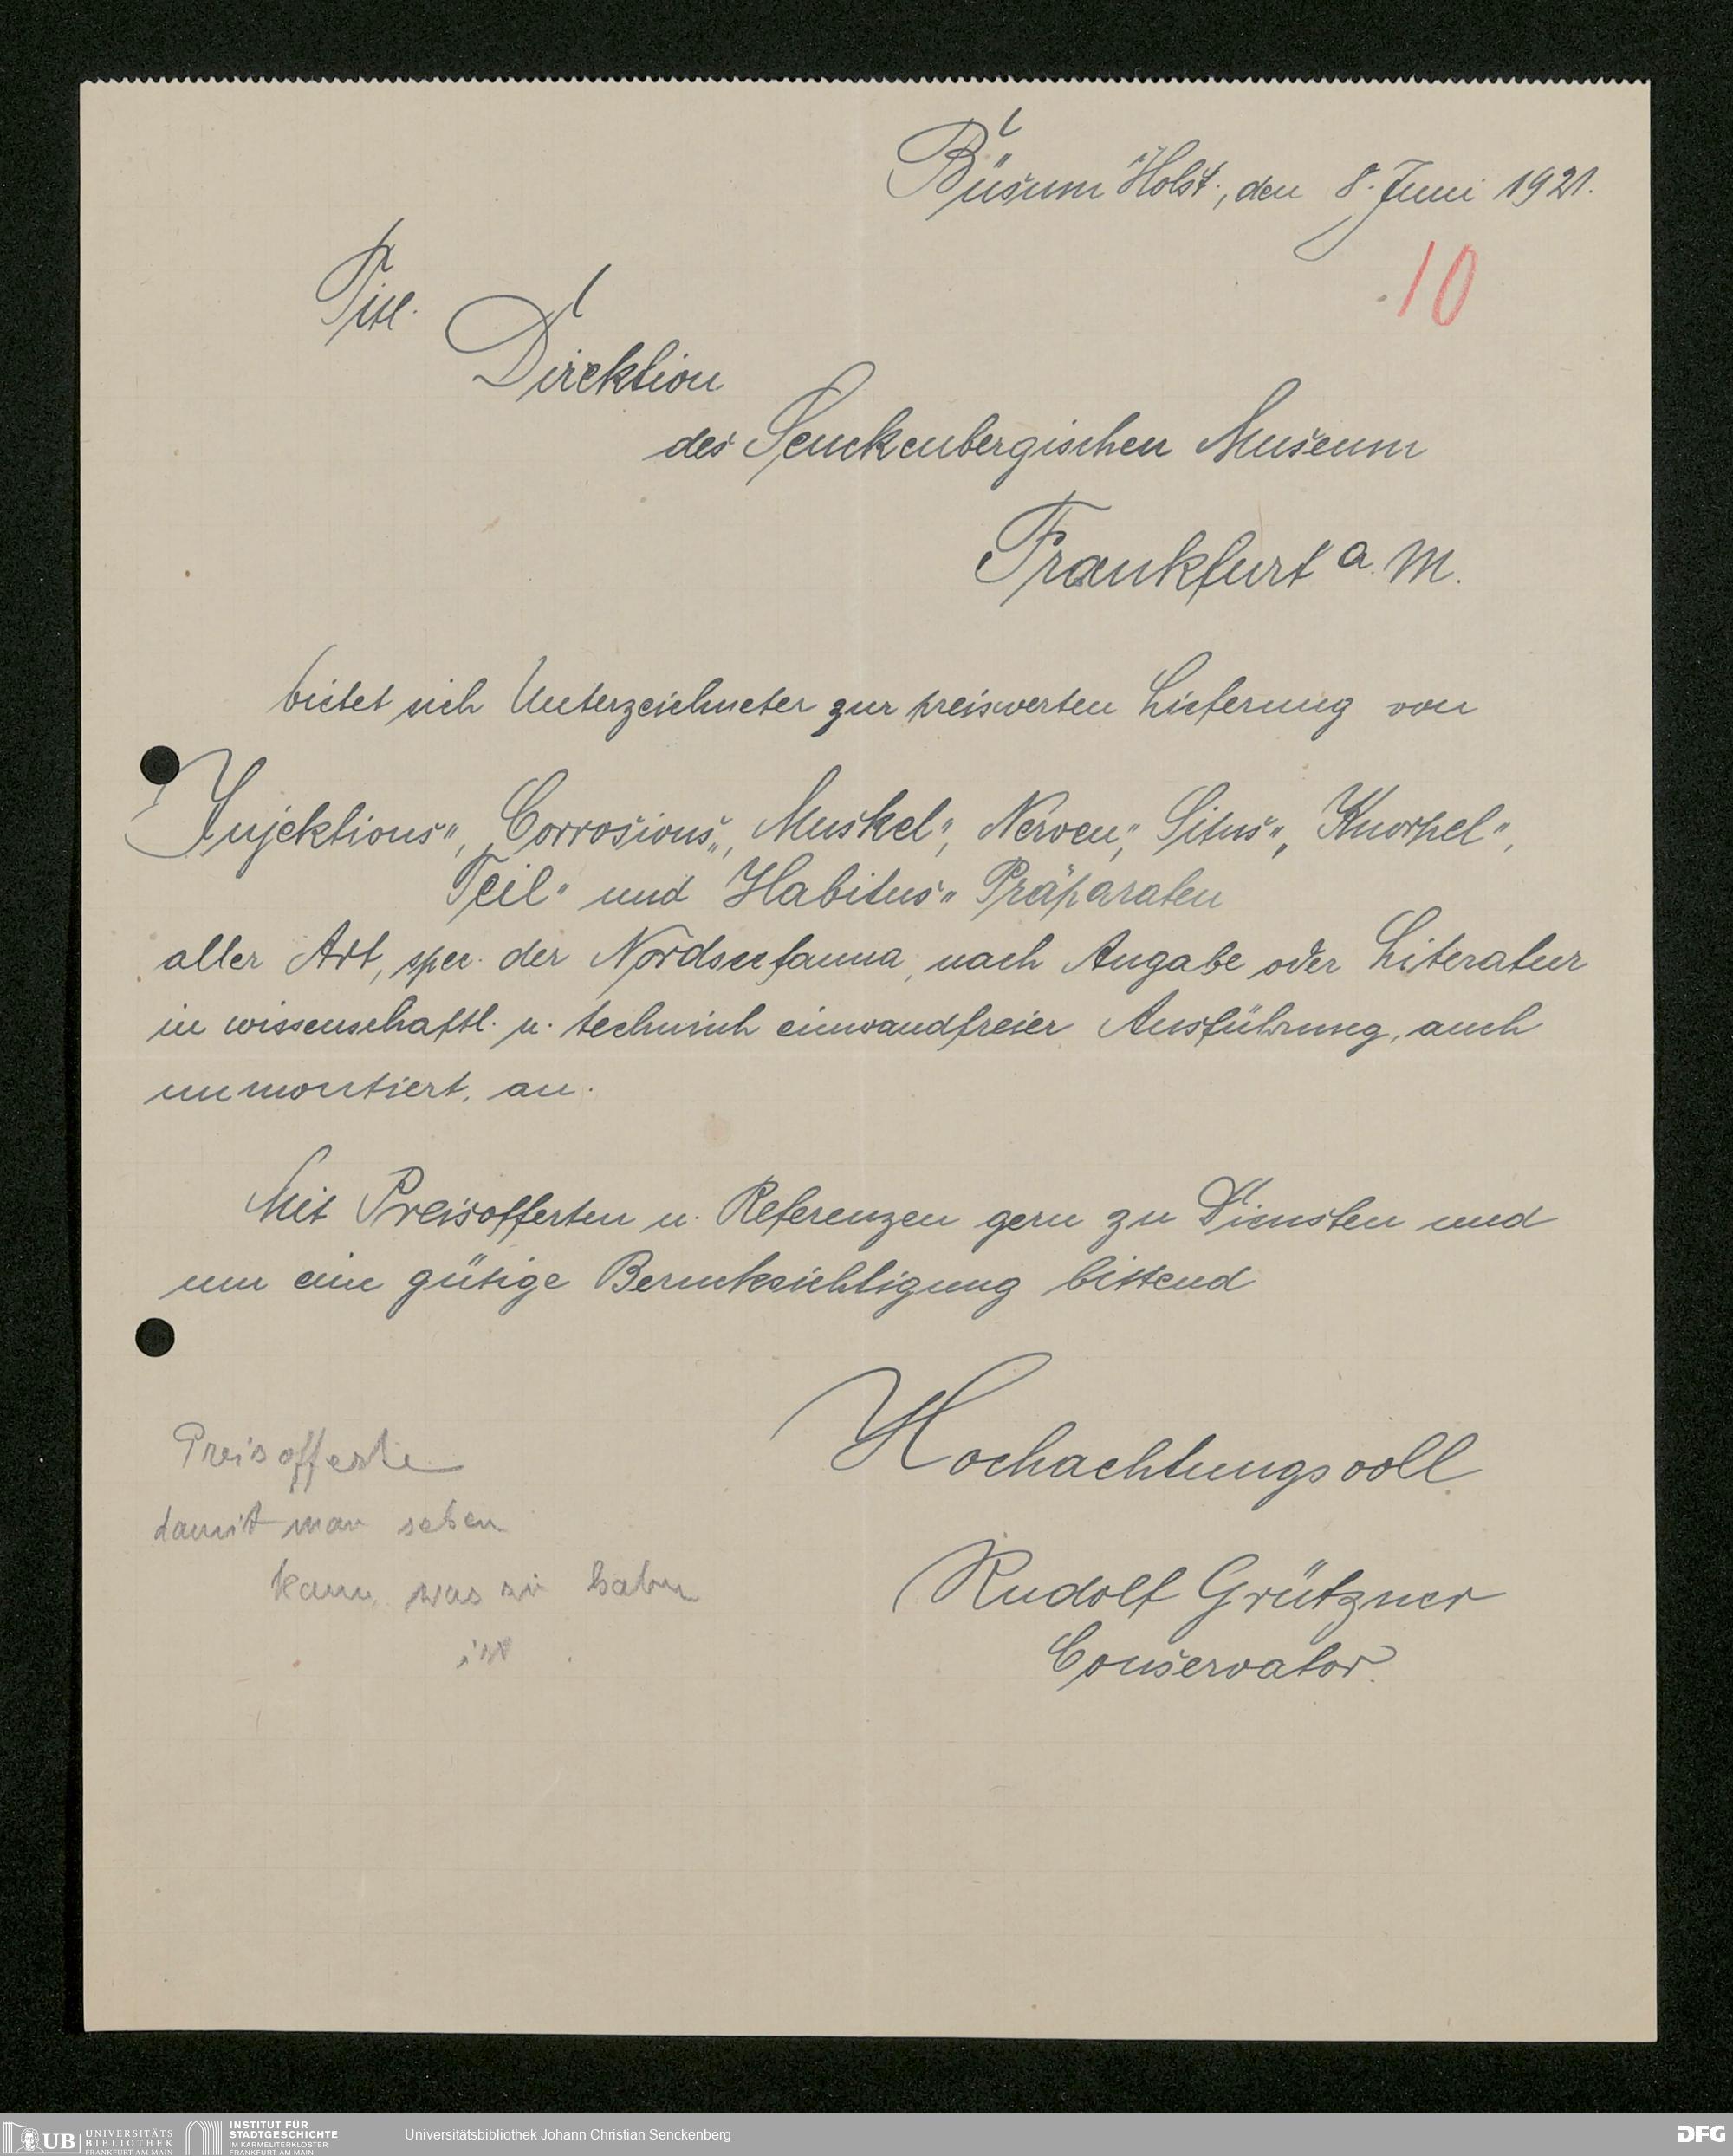 Büsum i/Holst., den 8. Juni 1921.
10
Titl.
Direktion
des Senckenbergischen Museum
Frankfurt a. M.
bietet sich Unterzeichneter zur preiswerten Lieferung von
Injektions", Corrosions", Muskel", Nerven", Situs", Knorpel",
Teil" und Habitus" Präparaten
aller Art, spec. der Nordseefauna, nach Angabe oder Literatur
in wissenschaftl. u. technisch einwandfreier Ausführung, auch
unmontiert, an.
Mit Preisofferten u. Referenzen gern zu Diensten und
um eine gütige Berucksichtigung bittend
Hochachtungsvoll
Rudolf Grützner
Conservator.
Preisofferte
damit man sehen
kann, was zu haben
ist
UB UNIVERSITÄTS
BIBLIOTHEK
FRANKFURT AM MAIN
INSTITUT FÜR
STADTGESCHICHTE
IM KARMELITERKLOSTER
FRANKFURT AM MAIN
Universitätsbibliothek Johann Christian Senckenberg
DFG